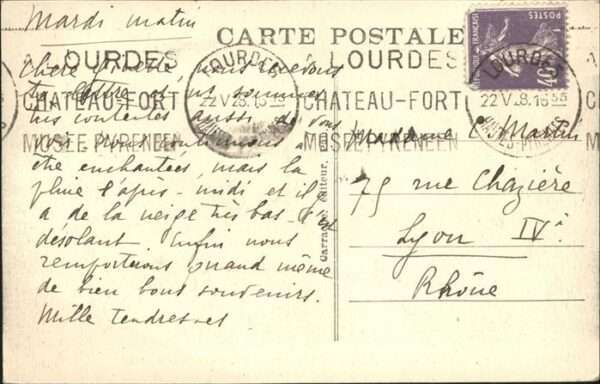 Mardi matin
CARTE POSTALE
LOURDES
CHATEAU-FORT
MUSÉE PYRÉNÉEN
LOURDES
22 V 28. 16 55
HAUTES-PYRÉNÉES
LOURDES
CHATEAU-FORT
MUSÉE PYRÉNÉEN
LOURDES
22 V 28. 16 55
HAUTES-PYRÉNÉES
POSTES
RÉPUBLIQUE FRANÇAISE
40
Chère nous recevons
ta lettre et ns sommes
très contentes aussi de vous
voir. Nous continuons à
être enchantées, mais la
pluie l'après-midi et il y
a de la neige très bas. C'est
désolant. Enfin nous
remporterons quand même
de bien bons souvenirs.
Mille tendresses
Carrache éditeur,
Madame C. Martin
75 rue Chazière
Lyon IVè
Rhône